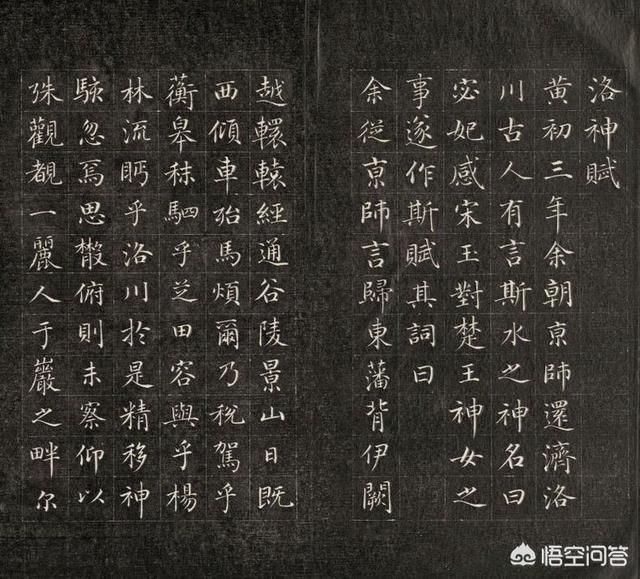 洛神賦
黄初三年余朝京師還濟洛
川古人有言斯水之神名曰
宓妃感宋玉對楚王神女之
事遂作斯賦其詞曰
余從京師言歸東藩背伊闕
越轘轅經通谷陵景山日既
西傾車殆馬煩爾乃稅駕乎
蘅皋秣駟乎芝田容與乎楊
林流眄乎洛川於是精移神
駭忽焉思散俯則未察仰以
殊觀覩一麗人于巖之畔尔
悟空问答